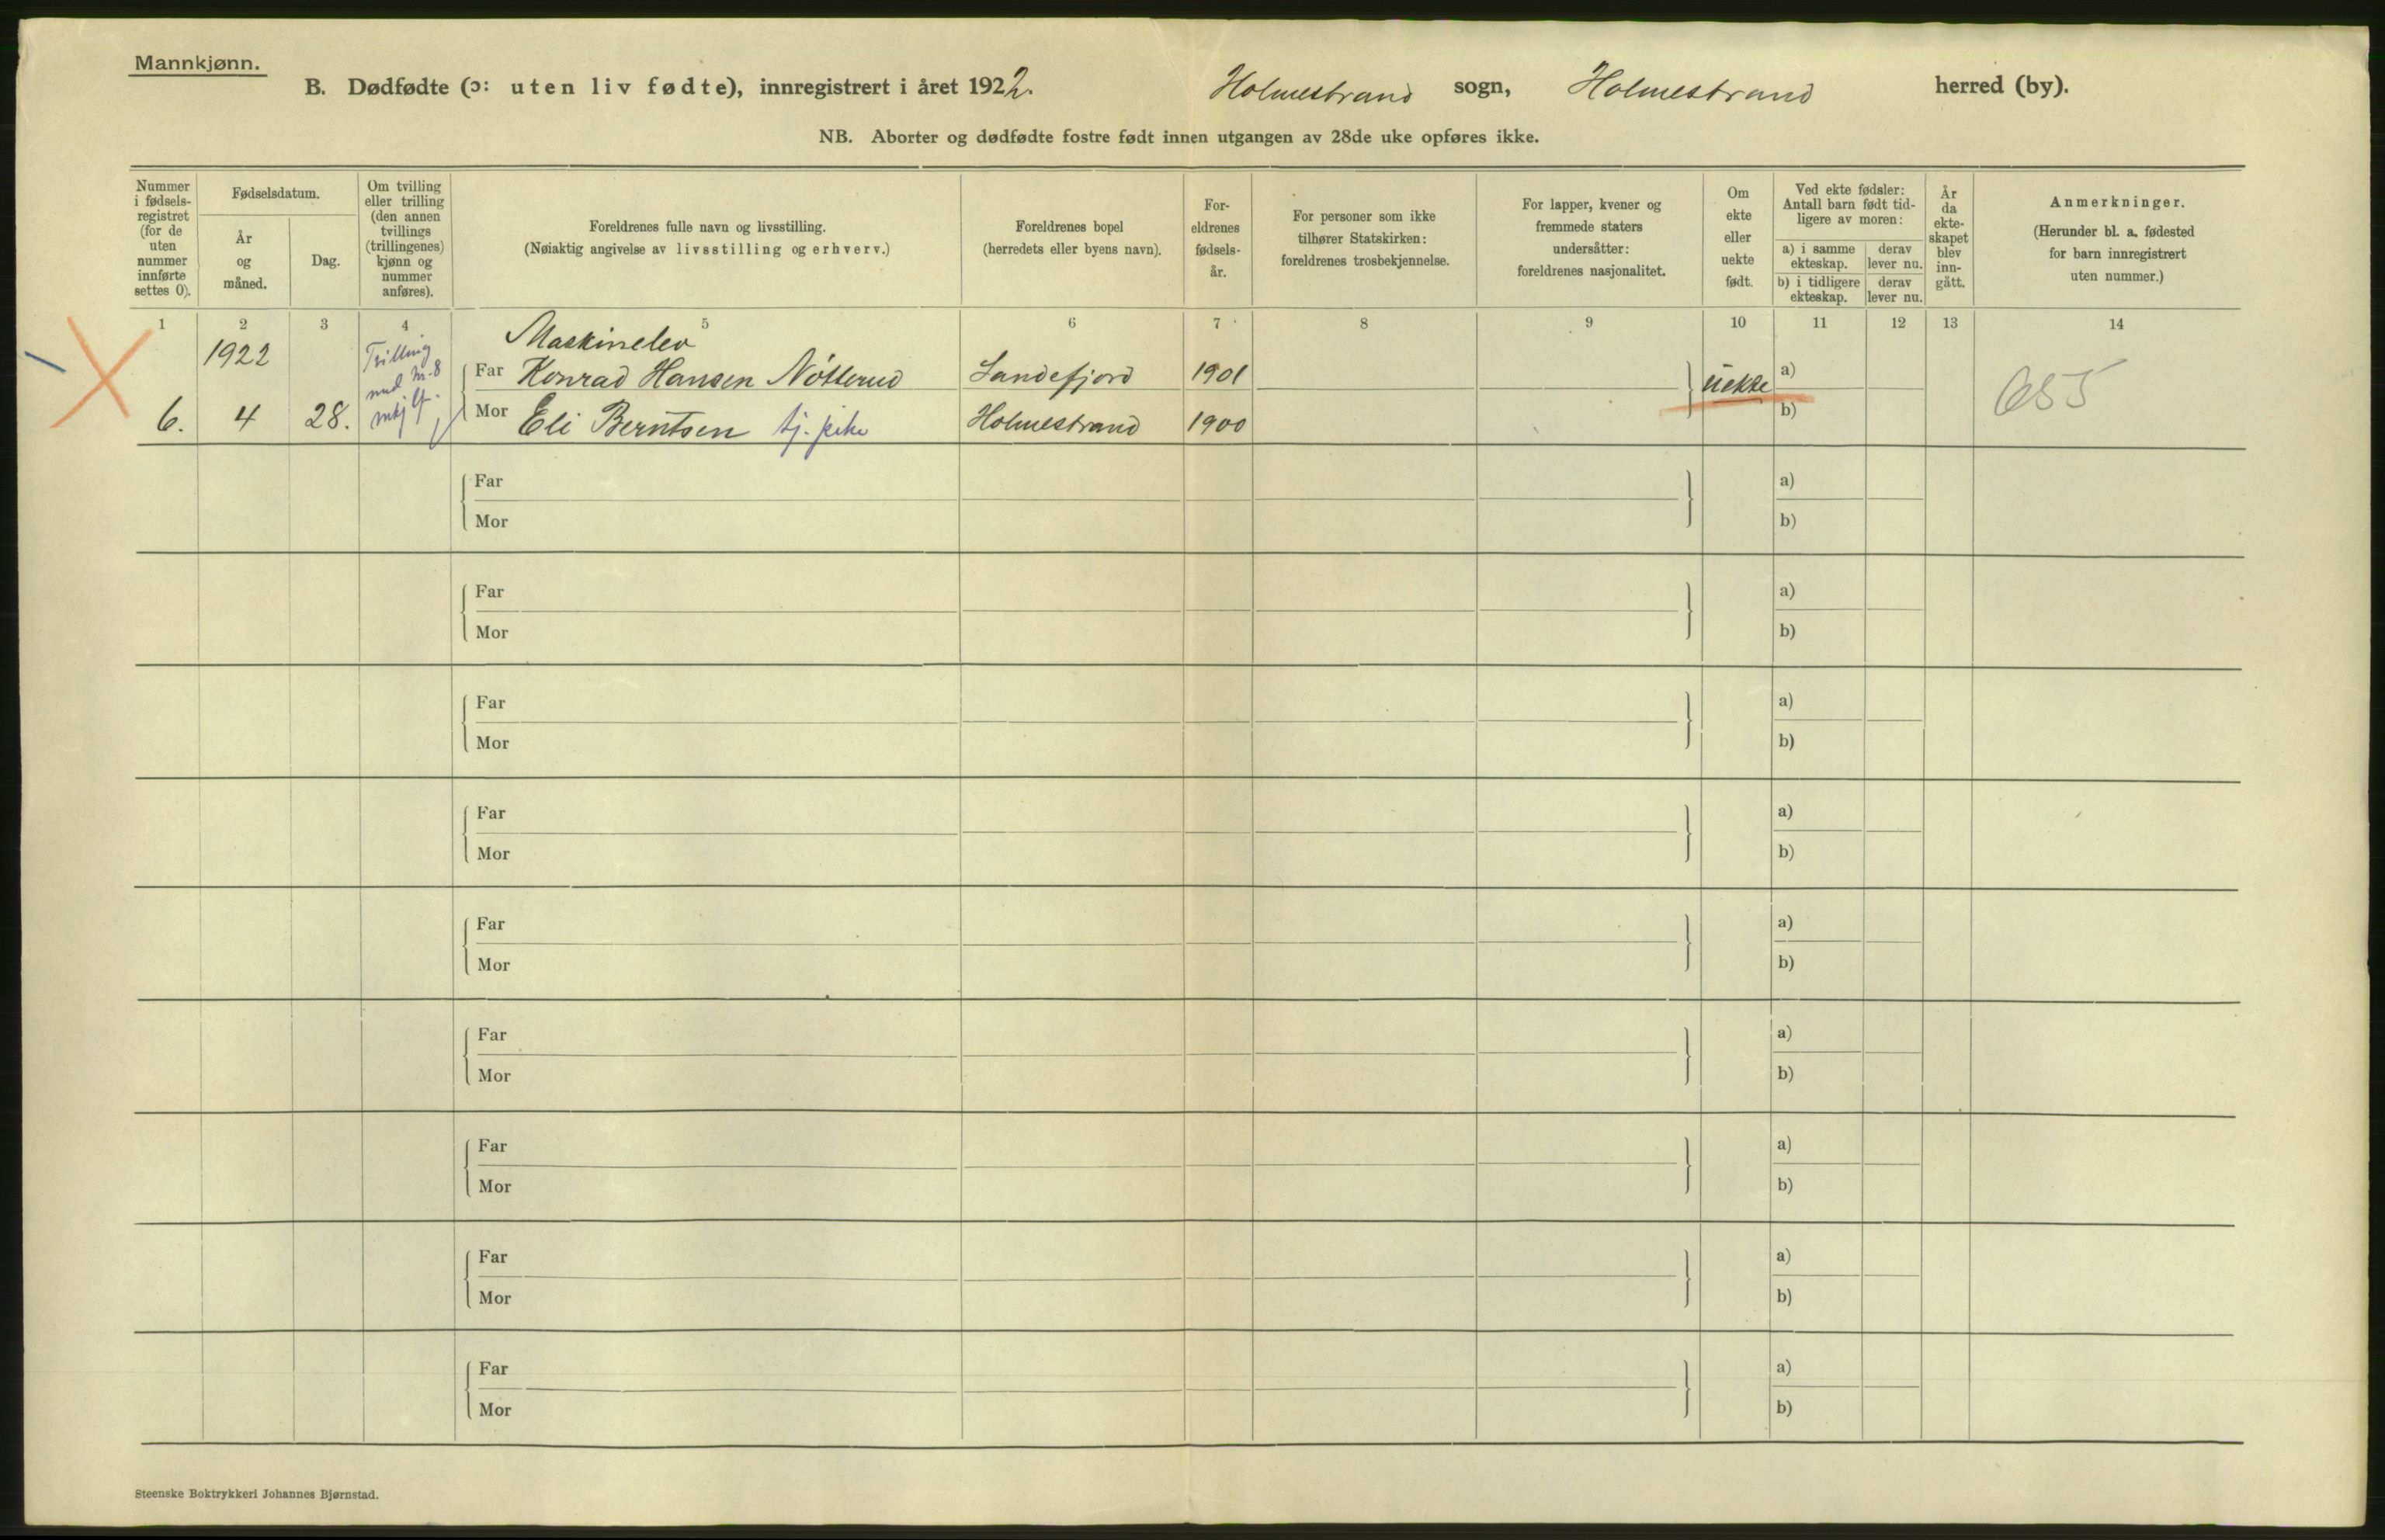 Mannkjønn.
B. Dødfødte (ɔ: uten liv fødte), innregistrert i året 1922. Holmestrand sogn, Holmestrand herred (by).
NB. Aborter og dødfødte fostre født innen utgangen av 28de uke opføres ikke.
Nummer i fødsels-registret (for de uten nummer innførte settes 0).
Fødselsdatum.
År og måned.
Dag.
Om tvilling eller trilling (den annen tvillings (trillingenes) kjønn og nummer anføres).
Foreldrenes fulle navn og livsstilling.
(Nøiaktig angivelse av livsstilling og erhverv.)
Foreldrenes bopel
(herredets eller byens navn).
For-eldrenes fødsels-år.
For personer som ikke tilhører Statskirken: foreldrenes trosbekjennelse.
For lapper, kvener og fremmede staters undersåtter: foreldrenes nasjonalitet.
Om ekte eller uekte født.
Ved ekte fødsler: Antall barn født tid-ligere av moren:
a) i samme ekteskap. derav lever nu.
b) i tidligere ekteskap. derav lever nu.
År da ekte-skapet blev inn-gått.
Anmerkninger.
(Herunder bl. a. fødested for barn innregistrert uten nummer.)
1 2 3 4 5 6 7 8 9 10 11 12 13 14
Maskinelev
1922 Trilling
Far Konrad Hansen Nøtterud Sandefjord 1901 uekte a)
med nr. 8
6. 4 28. Mor Eli Berntsen tj. pike Holmestrand 1900 b) 655
Far a)
Mor b)
Far a)
Mor b)
Far a)
Mor b)
Far a)
Mor b)
Far a)
Mor b)
Far a)
Mor b)
Far a)
Mor b)
Far a)
Mor b)
Far a)
Mor b)
Steenske Boktrykkeri Johannes Bjørnstad.